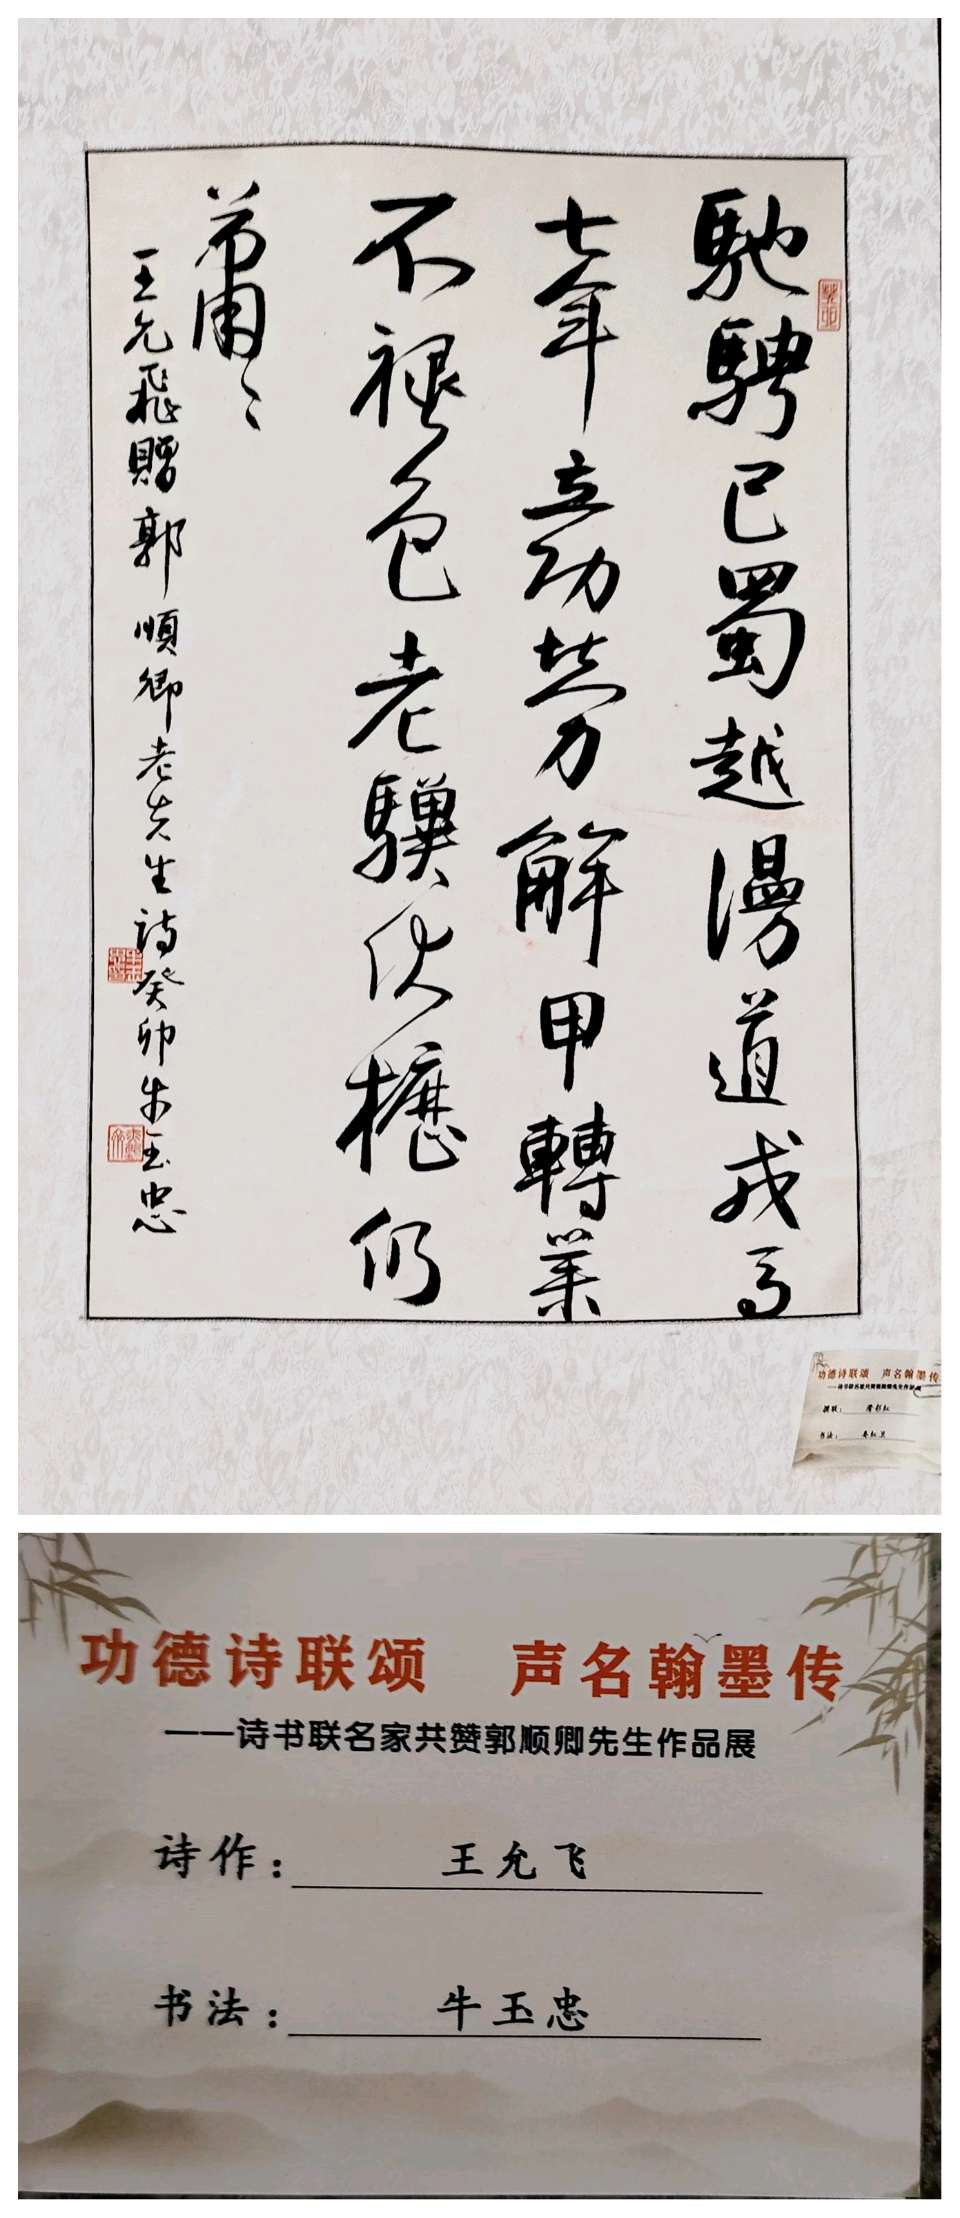 馳騁巴蜀越漫道戎馬
七年立功勞解甲轉業
不褪色老驥伏櫪仍
蕭〻
王允飛贈郭順卿老先生詩癸卯牛玉忠
癸卯
功德诗联颂 声名翰墨传
——诗书联名家共赞郭顺卿先生作品展
撰联：
书法：
功德诗联颂 声名翰墨传
——诗书联名家共赞郭顺卿先生作品展
诗作：王允飞
书法：牛玉忠